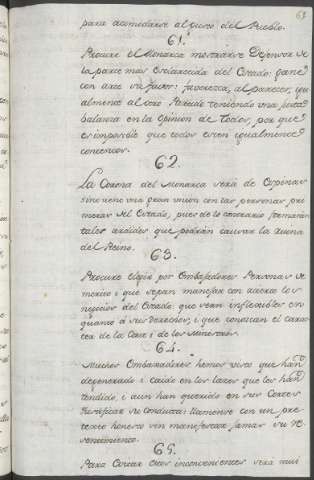 63
para acomodarse al gusto del Pueblo.
61.
Procure el Monarca mostrarse Defensor de
la parte mas esclarecida del Estado: gane
con arte su favor: favorezca, al parecer, igu
almente al otro Partido teniendo una justa
balanza en la opinion de todos, por que
es imposible que todos esten igualmente
contentos.
62.
La Corona del Monarca sera de Espinas
sino tiene una gran union con las personas pri
meras del Estado, pues de lo contrario formarán
tales ardides que podrán causar la ruina
del Reino.
63.
Procure elegir por Embajadores Personas de
merito i que sepan manejar con acierto los
negocios del Estado que sean inflexibles en
quanto á sus derechos, i que conoscan el carac
ter de la Corte i de los Ministros.
64.
Muchos Embaxadores hemos visto que han
degenerado i caido en los lazos que les han
tendido, i aun han querido en sus Cortes
justificar su conducta: llamense con un pre
texto honesto sin manifestar jamas su re
sentimiento.
65.
Para cortar estos inconvenientes sera mui